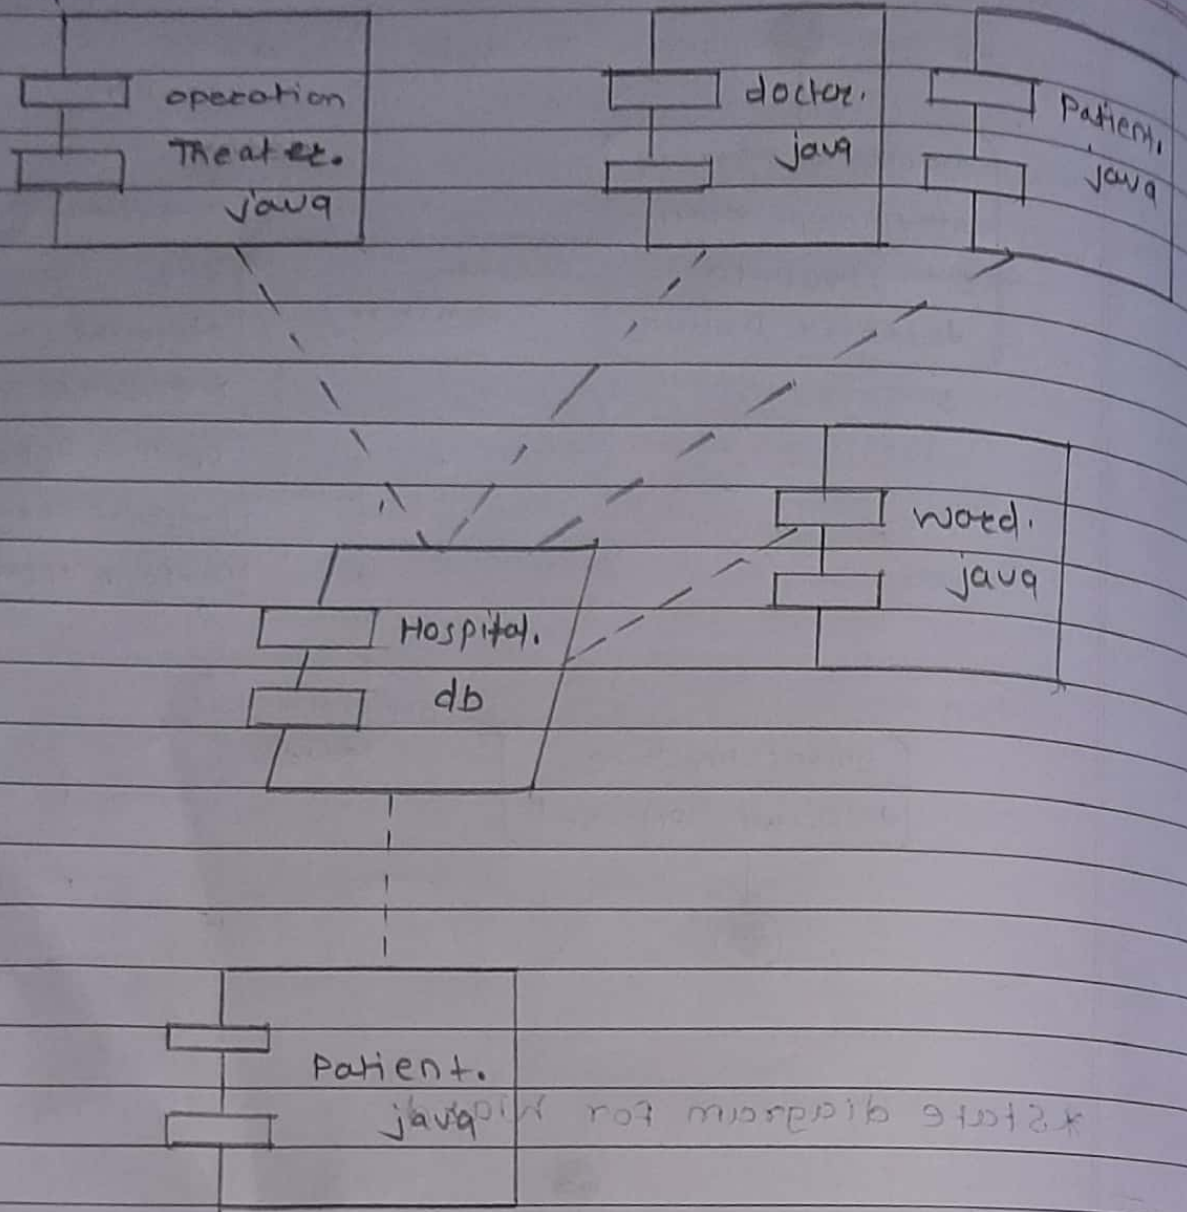 operation
Theater.
java
doctor.
java
Patient.
java
word.
java
Hospital.
db
Patient.
java
*State diagram for